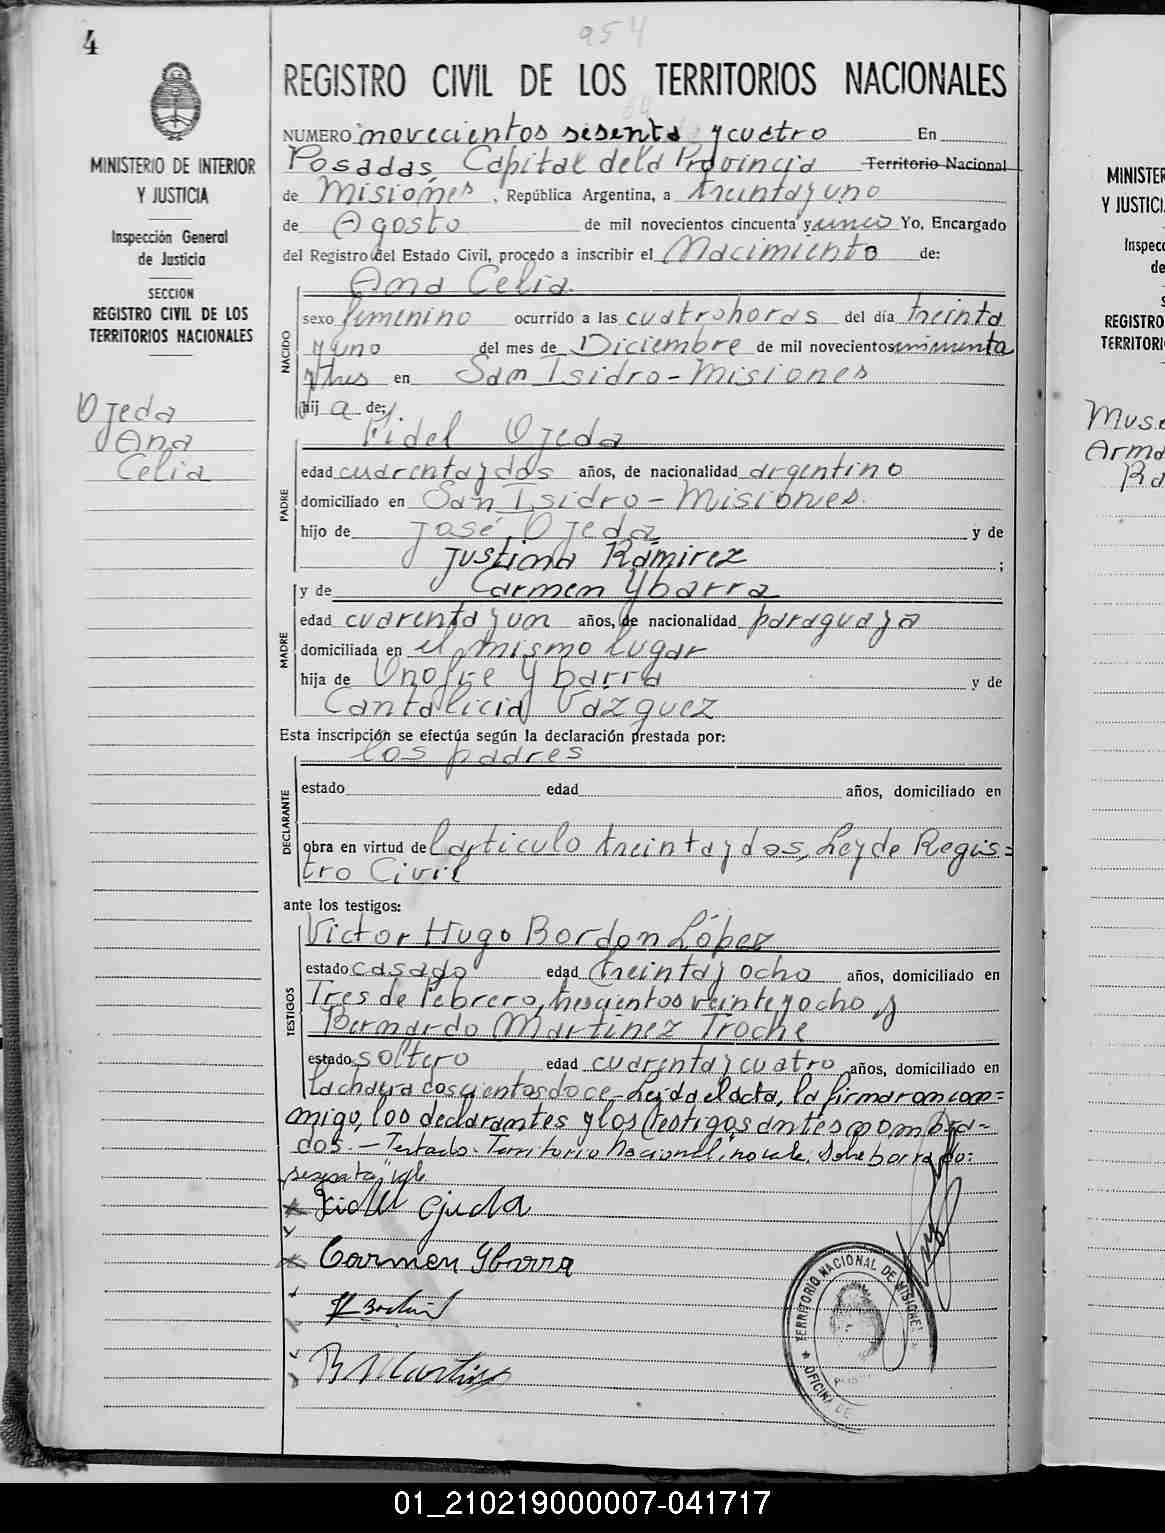 4
954
MINISTERIO DE INTERIOR
Y JUSTICIA
Inspección General
de Justicia
SECCION
REGISTRO CIVIL DE LOS
TERRITORIOS NACIONALES
Ojeda
Ana
Celia
REGISTRO CIVIL DE LOS TERRITORIOS NACIONALES
NUMERO novecientos sesenta y cuatro En
Posadas, Capital de la Provincia Territorio Nacional
de Misiones, República Argentina, a treinta y uno
de Agosto de mil novecientos cincuenta y cinco Yo, Encargado
del Registro del Estado Civil, procedo a inscribir el Nacimiento de:
Ana Celia
NACIDO
sexo femenino ocurrido a las cuatro horas del día treinta
y uno del mes de Diciembre de mil novecientos cincuenta
y tres en San Isidro - Misiones
hij a de:
Fidel Ojeda
PADRE
edad cuarenta y dos años, de nacionalidad argentino
domiciliado en San Isidro - Misiones.
hijo de José Ojeda y de
Justina Ramirez ;
y de Carmen Ybarra
MADRE
edad cuarenta y un años, de nacionalidad paraguaya
domiciliada en el mismo lugar
hija de Onofre Ybarra y de
Cantalicia Vázquez
Esta inscripción se efectúa según la declaración prestada por:
los padres
DECLARANTE
estado edad años, domiciliado en
obra en virtud del articulo treinta y dos, Ley de Regis=
tro Civil
ante los testigos:
Victor Hugo Bordon López
TESTIGOS
estado casado edad treinta y ocho años, domiciliado en
Tres de Febrero, trescientos veinte y ocho y
Bernardo Martinez Troche
estado soltero edad cuarenta y cuatro años, domiciliado en
la chacra doscientos doce - Leida el acta, la firmaron con=
migo, los declarantes y los testigos antes nombra=
dos. - Testado: Territorio Nacional, no vale. Sobre borrado:
sesenta, vale
Fidel Ojeda
Carmen Ybarra
B Martinez
TERRITORIO NACIONAL DE MISIONES
OFICINA DE
MINISTER
Y JUSTICI
Inspecc
de
S
REGISTRO
TERRITORI
Arma
01_210219000007-041717